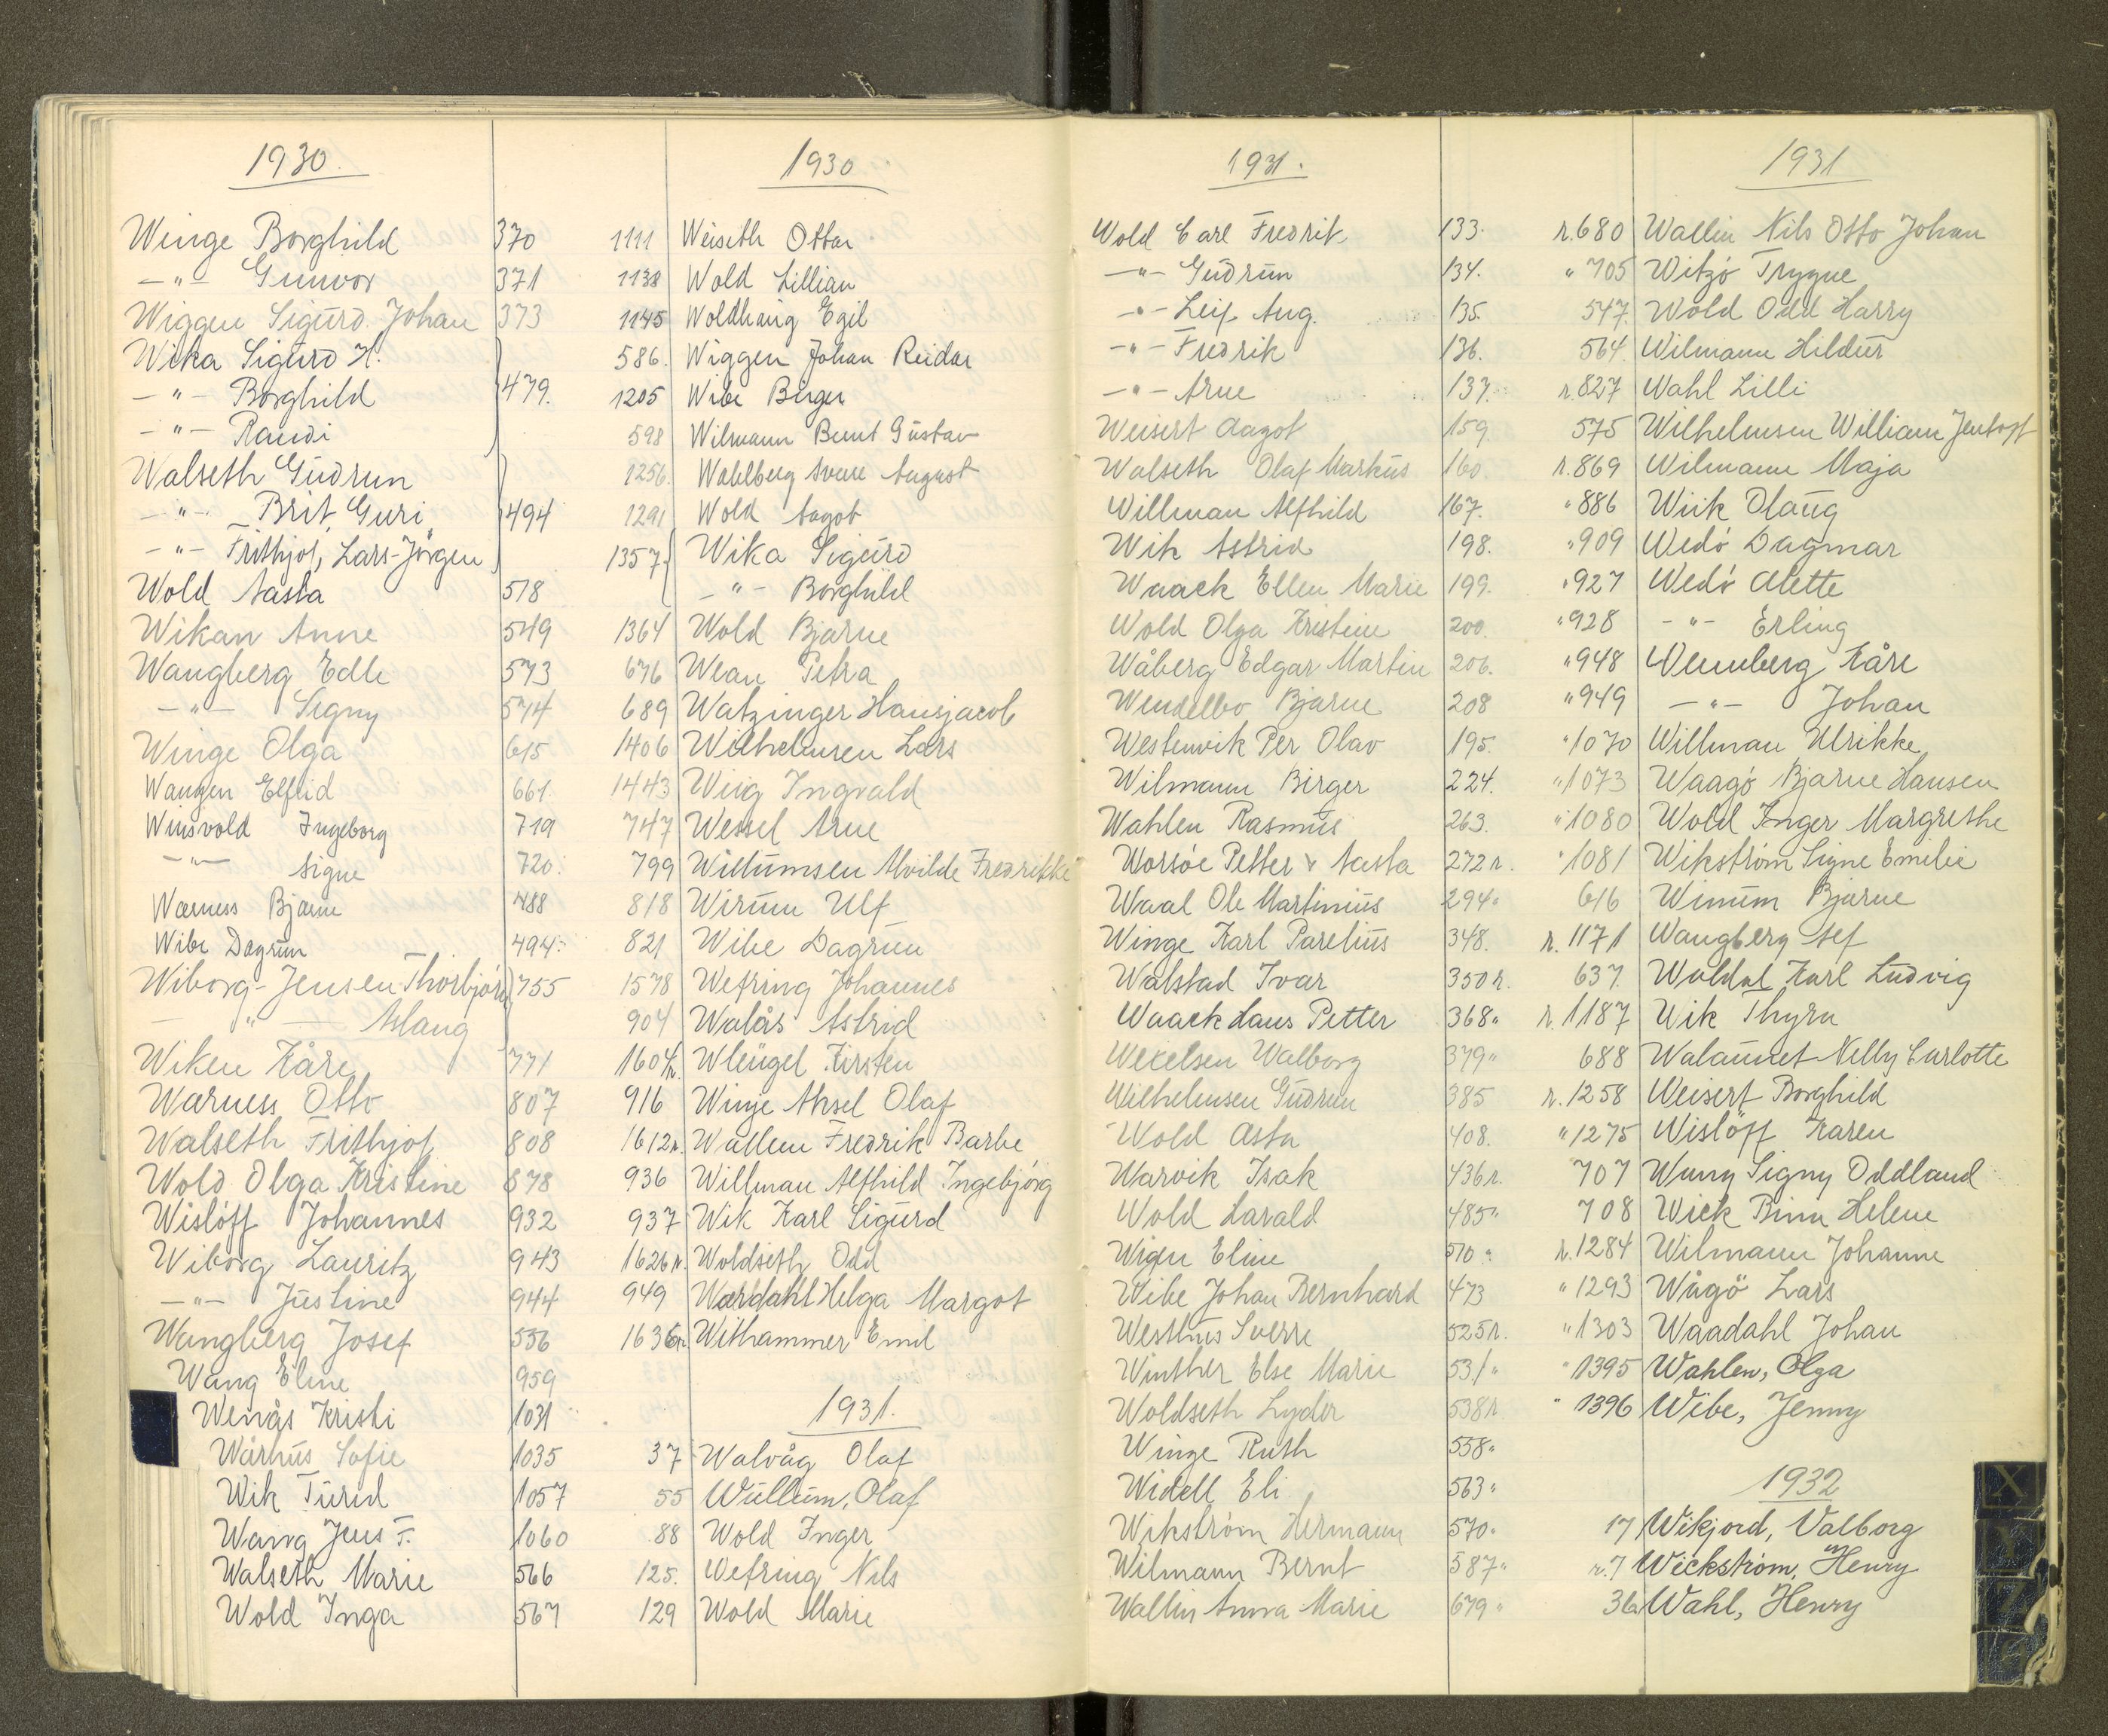 1930.
Winge Borghild 370
—"— Gunvor 371
Wiggen Sigurd Johan 373
Wika Sigurd H.
—"— Borghild 479.
—"— Randi
Walseth Gudrun
—"— Brit, Guri 494
—"— Frithjof, Lars-Jörgen
Wold Aasta 518
Wikan Anne 549
Wangberg Edle 573
—"— Signy 574
Winge Olga 615
Wangen Elfrid 661
Winsvold Ingeborg 719
—"— Signe 720.
Wærness Bjarne 488
Wibe Dagrun 494.
Wiborg-Jensen Thorbjörn 755
—"— Aslaug
Wiken Kåre 771
Wærness Otto 807
Walseth Frithjof 808
Wold Olga Kristine 878
Wislöff Johannes 932
Wiborg Lauritz 943
—"— Justine 944
Wangberg Josef 556
Wang Eline 959
Wenås Kristi 1031
Wårhus Sofie 1035
Wik Turid 1057
Wang Jens F. 1060
Walseth Marie 566
Wold Inga 567
1930
1111 Weiseth Ottar
1138 Wold Lillian
1145 Woldhaug Egil
586. Wiggen Johan Reidar
1205 Wibe Birger
598 Wilmann Bernt Gustav
1256. Wahlberg Sverre August
1291 Wold Aagot
1357 Wika Sigurd
—"— Borghild
1364 Wold Bjarne
676 Wean Petra
689 Watzinger Hansjacob
1406 Wilhelmsen Lars
1443 Wiig Ingvald
747 Wessel Arne
799 Willumsen Alvilde Fredrikke
818 Wirum Ulf
821 Wibe Dagrun
1578 Wefring Johannes
904 Walås Astrid
1604 r. Wleügel Kirsten
916 Winje Aksel Olaf
1612 r. Wallem Fredrik Barbe
936 Willman Alfhild Ingebjørg
937 Wik Karl Sigurd
1626 r. Woldseth Odd
949 Wærdahl Helga Margot
1636 r. Withammer Emil
1931.
37 Walvåg Olaf
55 Wullum, Olaf
88 Wold Inger
125. Wefring Nils
129 Wold Marie
1931.
Wold Carl Fredrik 133.
—"— Gudrun 134.
—"— Leif Aug. 135.
—"— Fredrik 136.
—"— Arne 137.
Weisert Aagot 159
Walseth Olaf Markus 160.
Willman Alfhild 167.
Wik Astrid 198.
Waack Ellen Marie 199.
Wold Olga Kristine 200.
Wåberg Edgar Martin 206.
Wendelbo Bjarne 208
Westenvik Per Olav 195.
Wilmann Birger 224.
Wahlen Rasmus 263.
Worsöe Petter & Aasta 272 r.
Waal Ole Martinius 294 "
Winge Karl Parelius 348.
Walstad Ivar 350 r.
Waack Hans Petter 368 "
Wexelsen Walborg 379 "
Wilhelmsen Gudrun 385
Wold Asta 408.
Warvik Isak 436 r.
Wold Harald 485 "
Wigen Eline 510 "
Wibe Johan Bernhard 473
Westhus Sverre 525 r.
Winther Else Marie 531 "
Woldseth Lyder 538 r.
Winge Ruth 558 "
Widell Eli 563 "
Wikström Hermann 570 "
Wilmann Bernt 587 "
Wallin Anna Marie 679 "
1931
r. 680 Wallin Nils Otto Johan
" 705 Witzö Trygve
547. Wold Odd Harry
564 Wilmann Hildur
r. 827 Wahl Lilli
575 Wilhelmsen William Jentoft
r. 869 Wilmann Maja
" 886 Wiik Olaug
" 909 Wedö Dagmar
" 927 Wedö Alette
" 928 —"— Erling
" 948 Wennberg Kåre
" 949 —"— Johan
" 1070 Willman Ulrikke
" 1073 Waagö Bjarne Hansen
" 1080 Wold Inger Margrethe
" 1081 Wikström Signe Emilie
616 Winum Bjarne
r. 1171 Wangberg Alf
637. Woldal Karl Ludvig
r. 1187 Wik Thyra
688 Walaunet Nelly Carlotte
r. 1258 Weisert Borghild
" 1275 Wislöff Karen
707 Wung Signy Oddland
708 Wick Helene
r. 1284 Wilmann Johanne
" 1293 Wågö Lars
" 1303 Waadahl Johan
" 1395 Wahlen, Olga
" 1396 Wibe, Jenny
1932
17 Wikjord, Valborg
r. 7 Wickström, Henry
36 Wahl, Henry
X
Y
Z